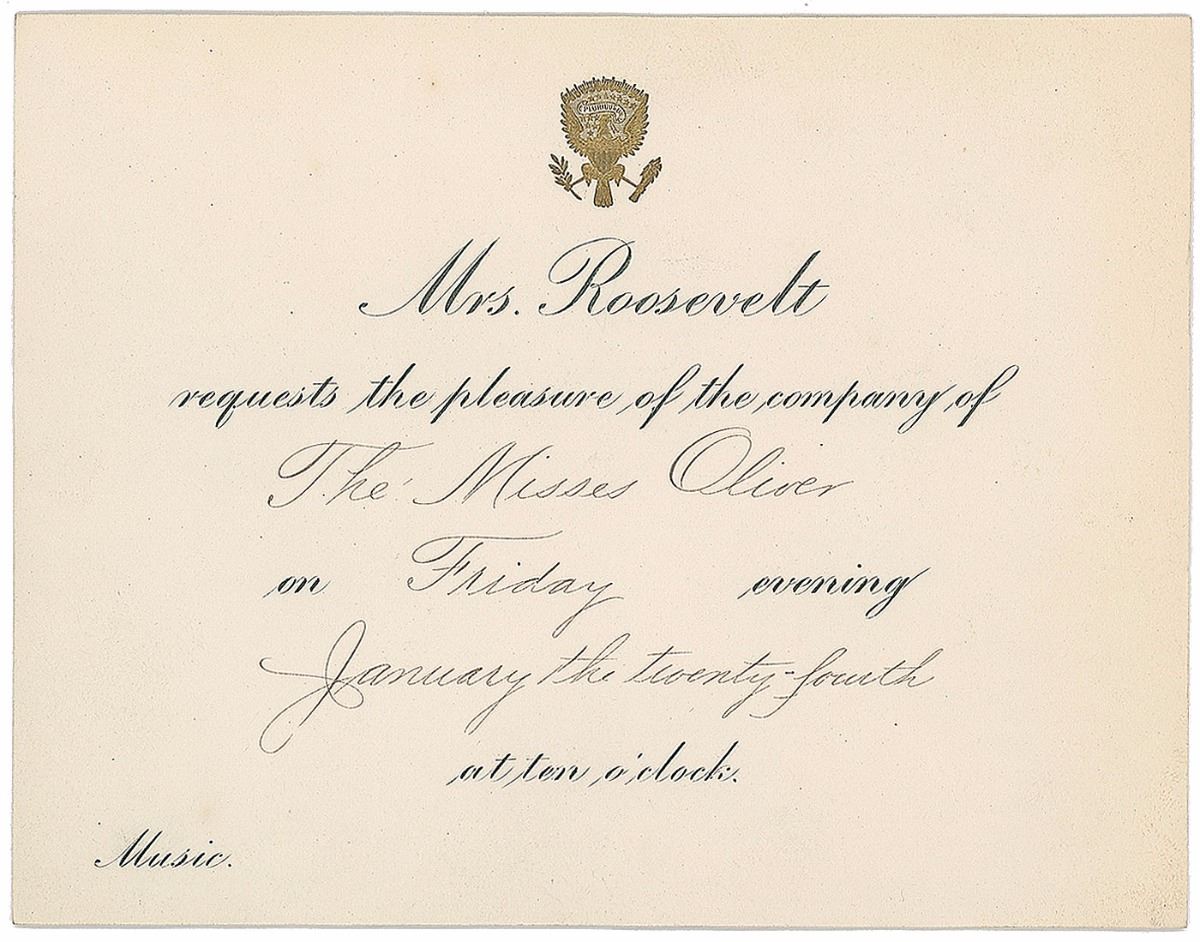 PLURIBUS
Mrs. Roosevelt
requests the pleasure of the company of
The Misses Oliver
on Friday evening
January the twenty-fourth
at ten o'clock.
Music.